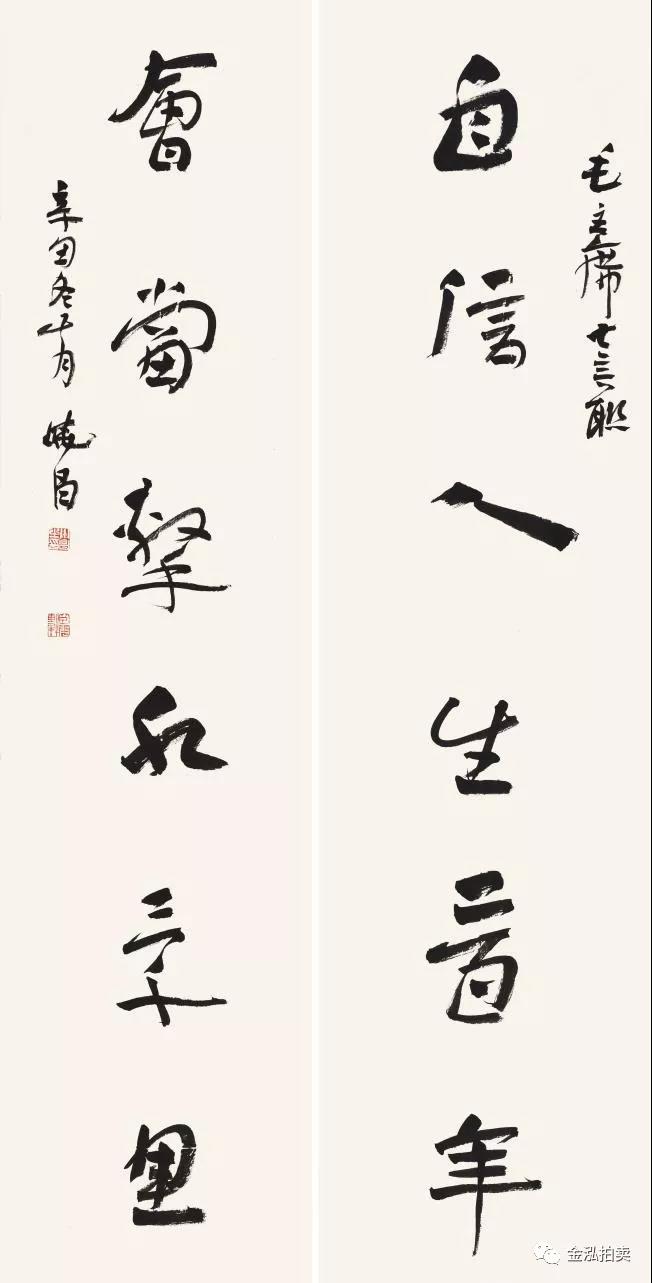 毛主席七言聯
自信人生二百年
會當擊水三千里
辛酉冬十月
金泓拍卖